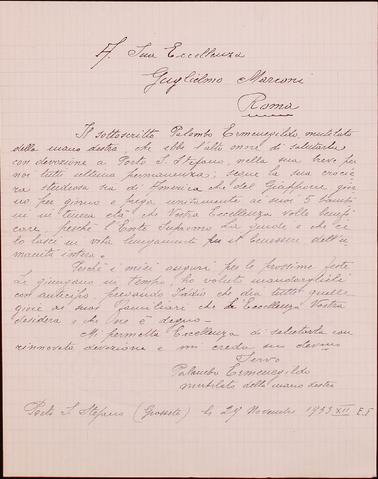 A Sua Eccellenza
Guglielmo Marconi
Roma
Il sottoscritto Palombo Ermenegildo mutilato
della mano destra, che ebbe l'alto onore di salutarla
con devozione a Porto S. Stefano, nella sua breve per
noi tutti ultima permanenza; segue la sua crocie
ra studiosa sia di America che del Giappone gior
no per giorno e prega unitamente ai suoi 5 bambi
ni in tenera età che Vostra Eccellenza volle benefi
care, perchè l'Ente Supremo La guidi e che ce
lo lasci in vita lungamente per il benessere dell'u
manità intera.
Perchè i miei auguri per le prossime feste
Le giungano in tempo, ho voluto mandarglieli
con anticipo, pregando Iddio che dia tutte quelle
gioie ai suoi famigliari che la Eccellenza Vostra
desidera, e che ne è degno.
Mi permetta Eccellenza di salutarla con
rinnovata devozione e mi creda suo devmo
Servo
Palombo Ermenegildo
mutilato della mano destra
Porto S. Stefano (Grosseto) li 29 Novembre 1933 XII E.F.